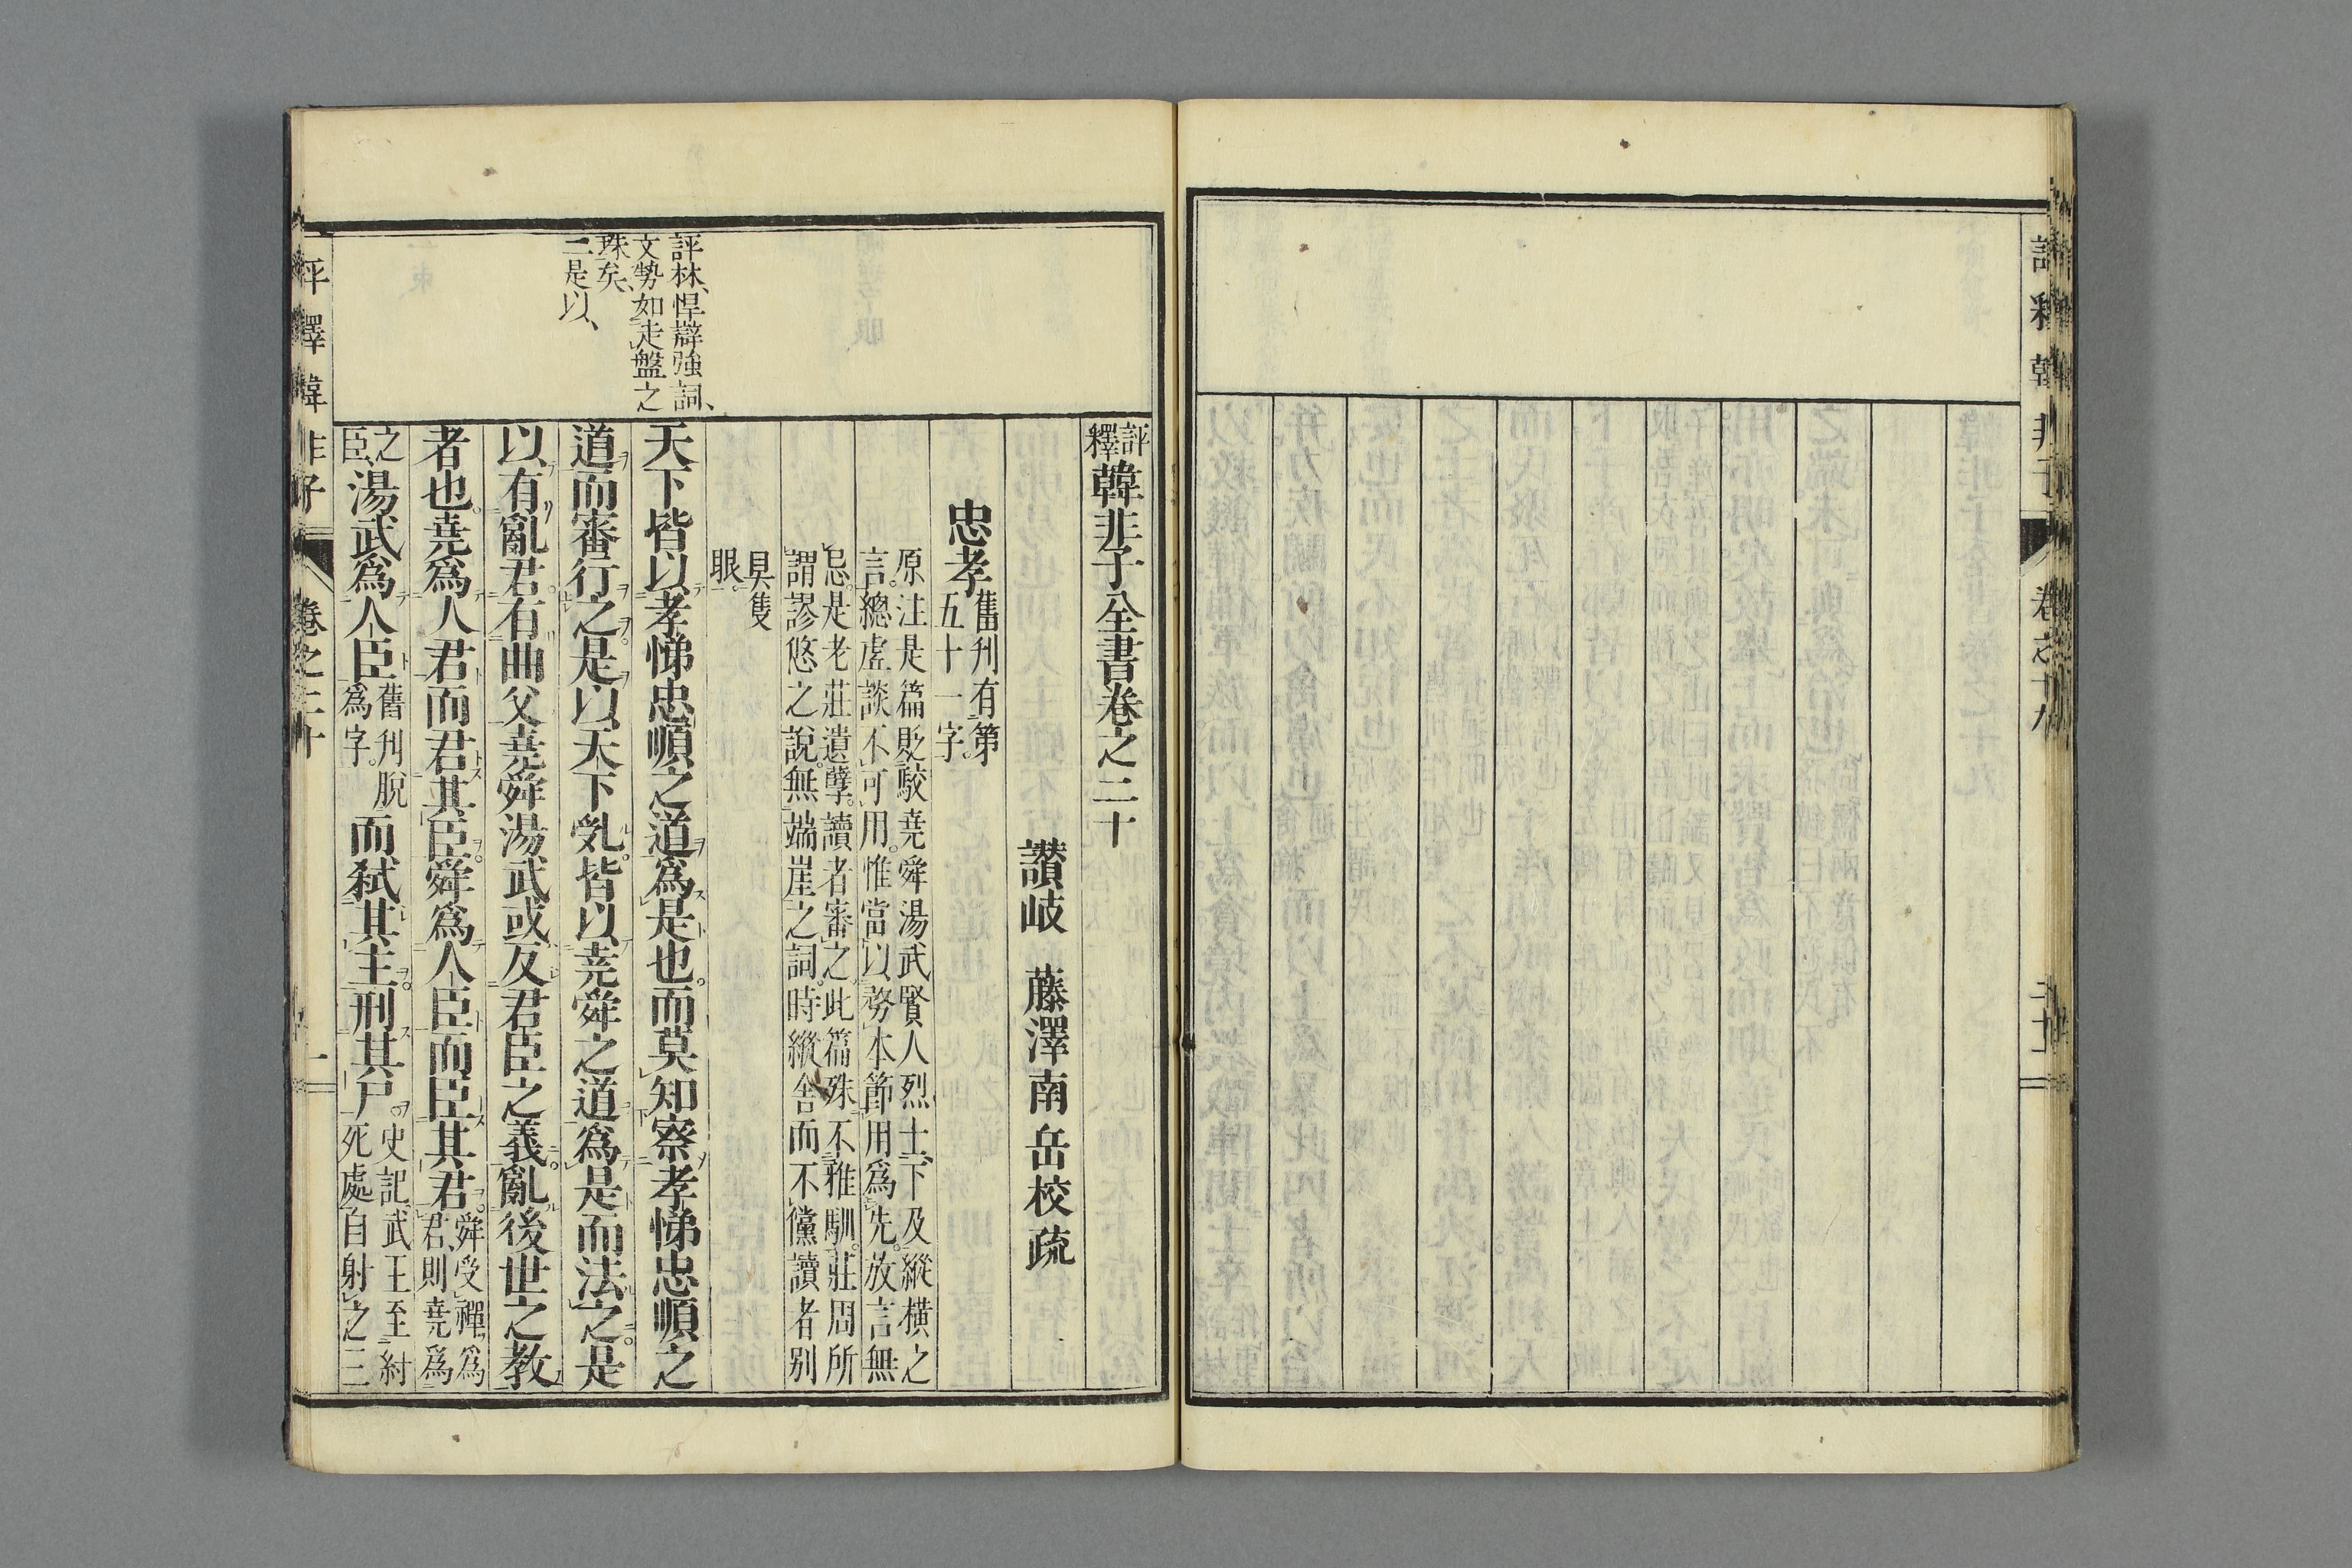 評釋韓非子全書卷之二十
讃岐 藤澤南岳校疏
忠孝 舊刋有第五十一字。
原注是篇貶駁堯舜湯武賢人烈士、下及縱橫之
言。總虛談不可用。惟當以務本節用爲先。放言無
忌。是老莊遺孽。讀者審之。此篇殊不雅馴。莊周所
謂謬悠之說。無端崖之詞。時縱舍而不儻讀者別
具隻
眼。
天下皆以孝悌忠順之道爲是也。而莫知察孝悌忠順之
道而審行之。是以天下乱。皆以堯舜之道爲是而法之。是
以有亂君。有曲父堯舜湯武或反君臣之義。亂後世之教
者也。堯爲人君而君其臣。舜爲人臣而臣其君。舜受禪、爲君、則堯爲
之臣、湯武爲人臣舊刋脫爲字。而弑其主。刑其尸。史記、武王至紂死處自射之三
評林、悍辯強詞、
文勢如走盤之
珠矣、
二是以、
評釋韓非子 卷之二十 一
評釋韓非子 卷之十九